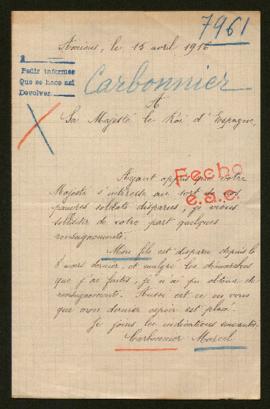 7961
Amiens, le 15 avril 1916
A
Pedir informes
Que se hace así
Devolver
Carbonnier
A
Sa Majesté le Roi d'Espagne,
Ayant appris que votre
Majesté s'intéresse au sort de nos
pauvres soldats disparus, je viens
solliciter de votre part quelques
renseignements.
Fecho
e.a.c.
Mon fils est disparu depuis le
8 mars dernier, et malgré les démarches
que j'ai faites, je n'ai pu obtenir de
renseignement. Aussi est-ce en vous
que mon dernier espoir est placé.
Je joins les indications suivantes.
Carbonnier Marcel